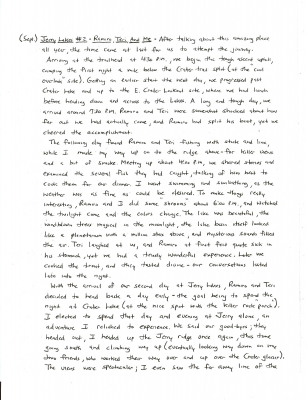 (Sept) Jerry Lakes #2 - Ramiro, Tari, And Me - After talking about this amazing place
all year, the time came at last for us to attempt the journey.
Arriving at the trailhead at 4:30 P.M., we began the tough ascent uphill,
camping the first night a mile below the Crater Lake split (at the cool
overlook side). Getting an earlier start the next day, we progressed past
Crater Lake and up to the E. Crater Lake side, where we had lunch
before heading down and across to the Lakes. A long and tough day, we
arrived around 7:30 P.M. Ramiro and Tari were somewhat shocked about how
far out we had actually come, and Ramiro had split his boot, yet we
cheered the accomplishment.
The following day found Ramiro and Tari fishing with stick and line,
while I made my way up on to the ridge above for killer views
and a bit of smoke. Meeting up about 4:00 P.M., we shared stories and
examined the several fish they had caught, talking of how best to
cook them for our dinner. I went swimming and sunbathing, as the
weather was as fine as could be desired. To make things really
interesting, Ramiro and I did some about 6:00 P.M., and watched
the twilight come and the colors change. The lake was beautiful, the
trees in the moonlight, the lake basin itself looked
like a planetarium with a million stars above, and mysterious sounds filled
the air. Tari laughed at us, and Ramiro at first felt quite sick in
his stomach, yet we had a truly wonderful experience. Later we
cooked the trout, and they tasted divine - our conversations lasted
late into the night.
With the arrival of our second day at Jerry Lakes, Ramiro and Tari
decided to head back a day early - the goal being to spend that
night at Crater Lake (at the nice spot with the killer rock porch).
I elected to spend that day and evening at Jerry alone, an
adventure I relished to experience. We said our goodbyes; they
headed out, I headed up the Jerry ridge once again, this time
going south and climbing way up (eventually looking way down on my
friends, who worked their way over and up over the Crater glacier).
The views were spectacular; I even saw the far away line of the